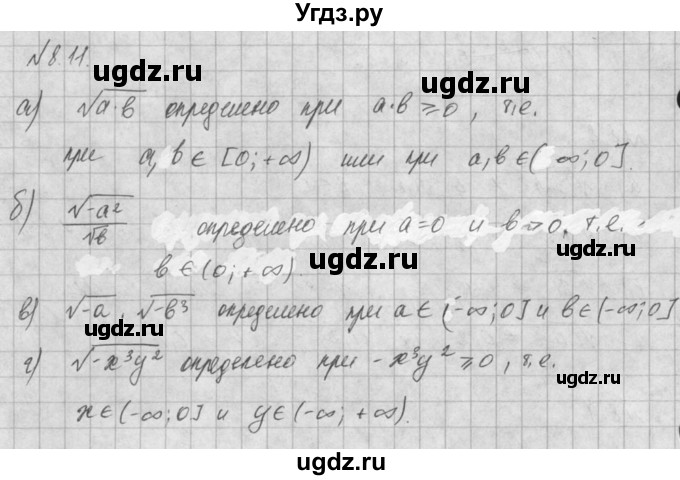 Угдз.ру
№8.11.
ugdz.ru
ugdz.ru
а) √a·b определено при a·b ≥ 0, т.е.
при a, b ∈ [0; +∞) или при a, b ∈ (∞; 0].
ugdz.ru
б) √-a² / √b определено при a=0 и b>0, т.е.
b ∈ (0; +∞).
ugdz.ru
в) √-a, √-b³ определено при a ∈ (-∞; 0] и b ∈ (-∞; 0]
г) √-x³y² определено при -x³y² ≥ 0, т.е.
ugdz.ru
ugdz.ru
x ∈ (-∞; 0] и y ∈ (-∞; +∞).
ugdz.ru